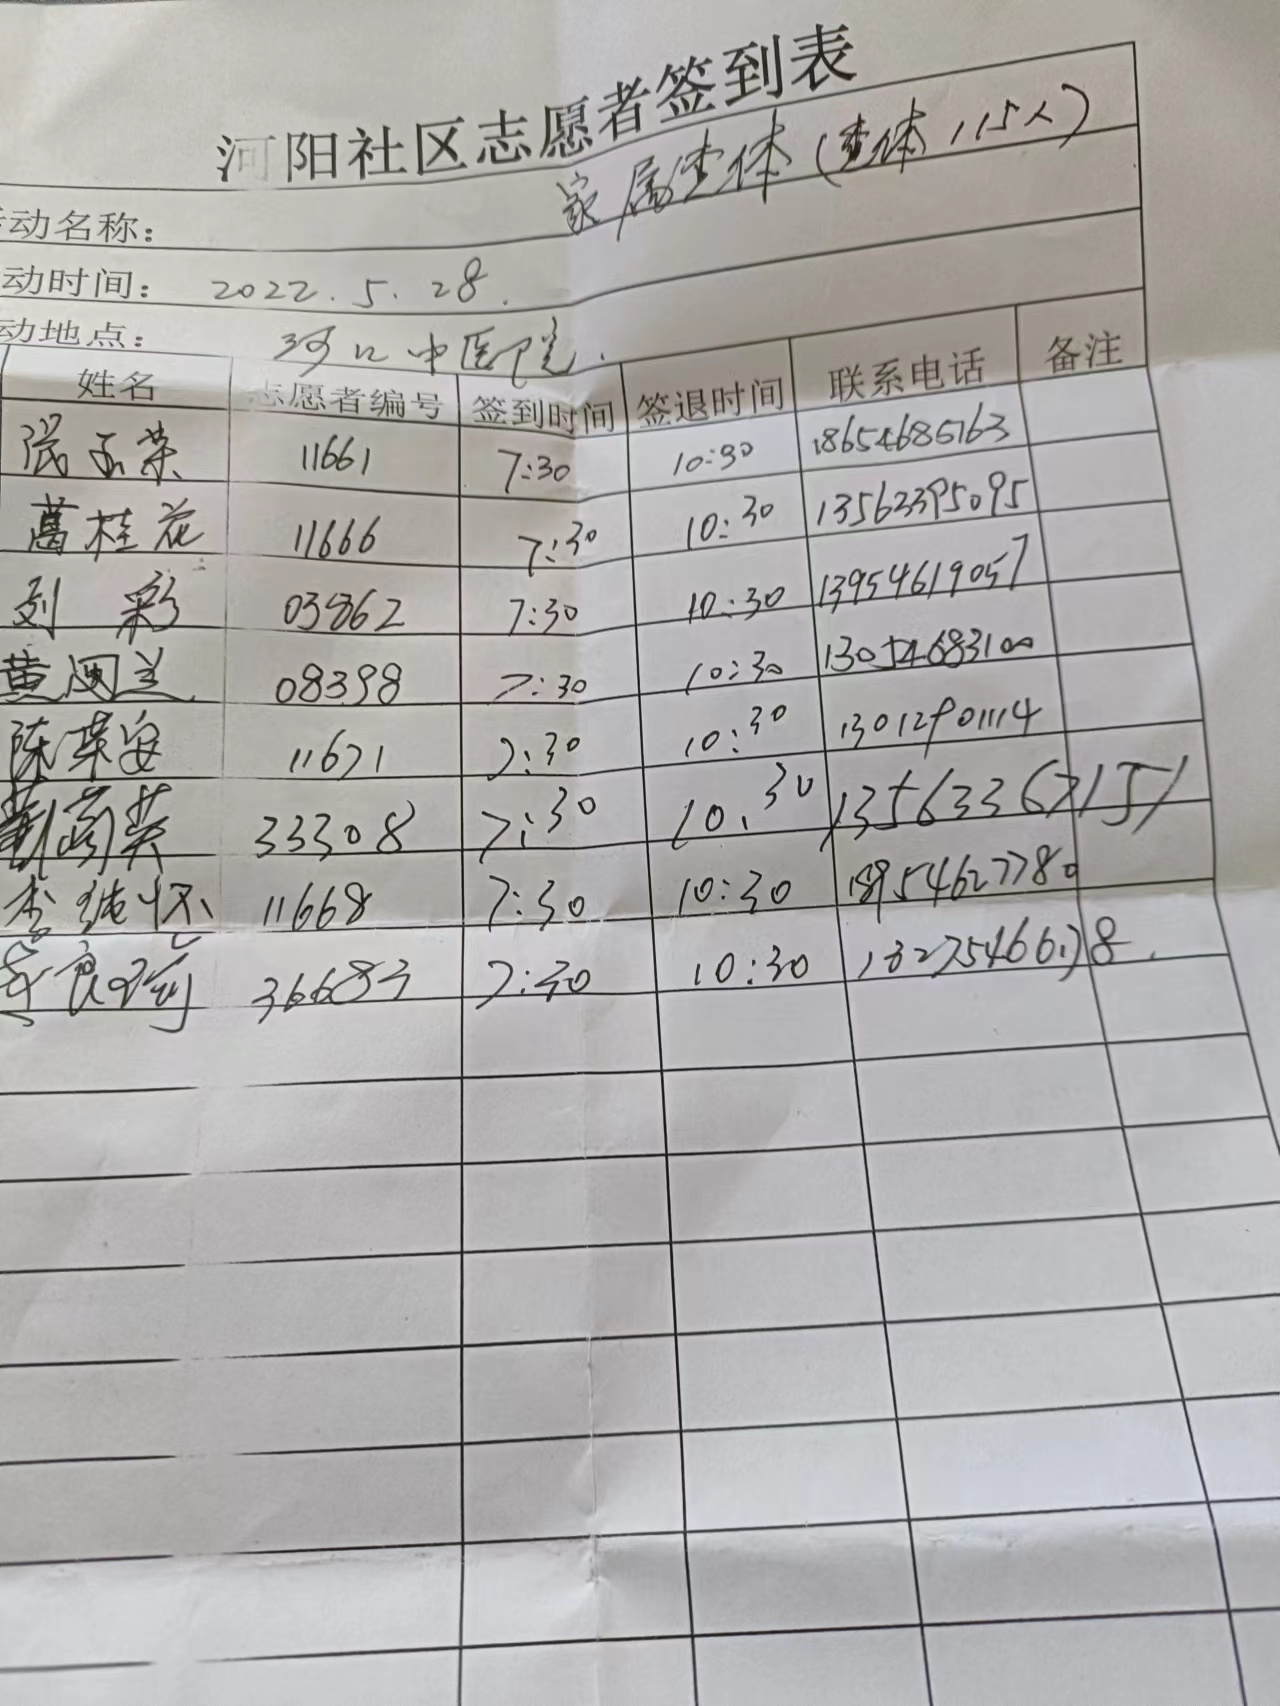 河阳社区志愿者签到表
动名称： 家属查体（查体115人）
动时间： 2022.5.28.
动地点： 河口中医院.
姓名 志愿者编号 签到时间 签退时间 联系电话 备注
张玉荣 11661 7:30 10:30 18654685763
葛桂花 11666 7:30 10:30 13563395095
刘彩 03862 7:30 10:30 13954619057
黄闽兰 08398 7:30 10:30 13054683100
陈荣安 11671 7:30 10:30 13012901114
33308 7:30 10:30 13563367151
李纯怀 11668 7:30 10:30 18954627780
36683 7:30 10:30